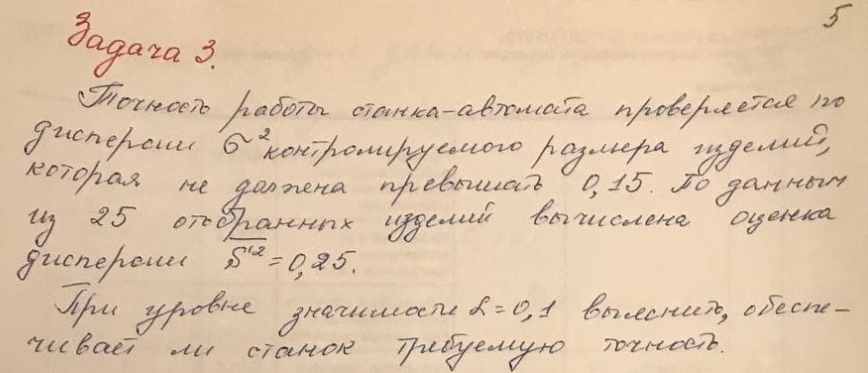 5
Задача 3.
Точность работы станка-автомата проверяется по
дисперсии σ² контролируемого размера изделий,
которая не должена превышать 0,15. По данным
из 25 отобранных изделий вычислена оценка
дисперсии S'² = 0,25.
При уровне значимости α = 0,1 выяснить, обеспе-
чивает ли станок требуемую точность.